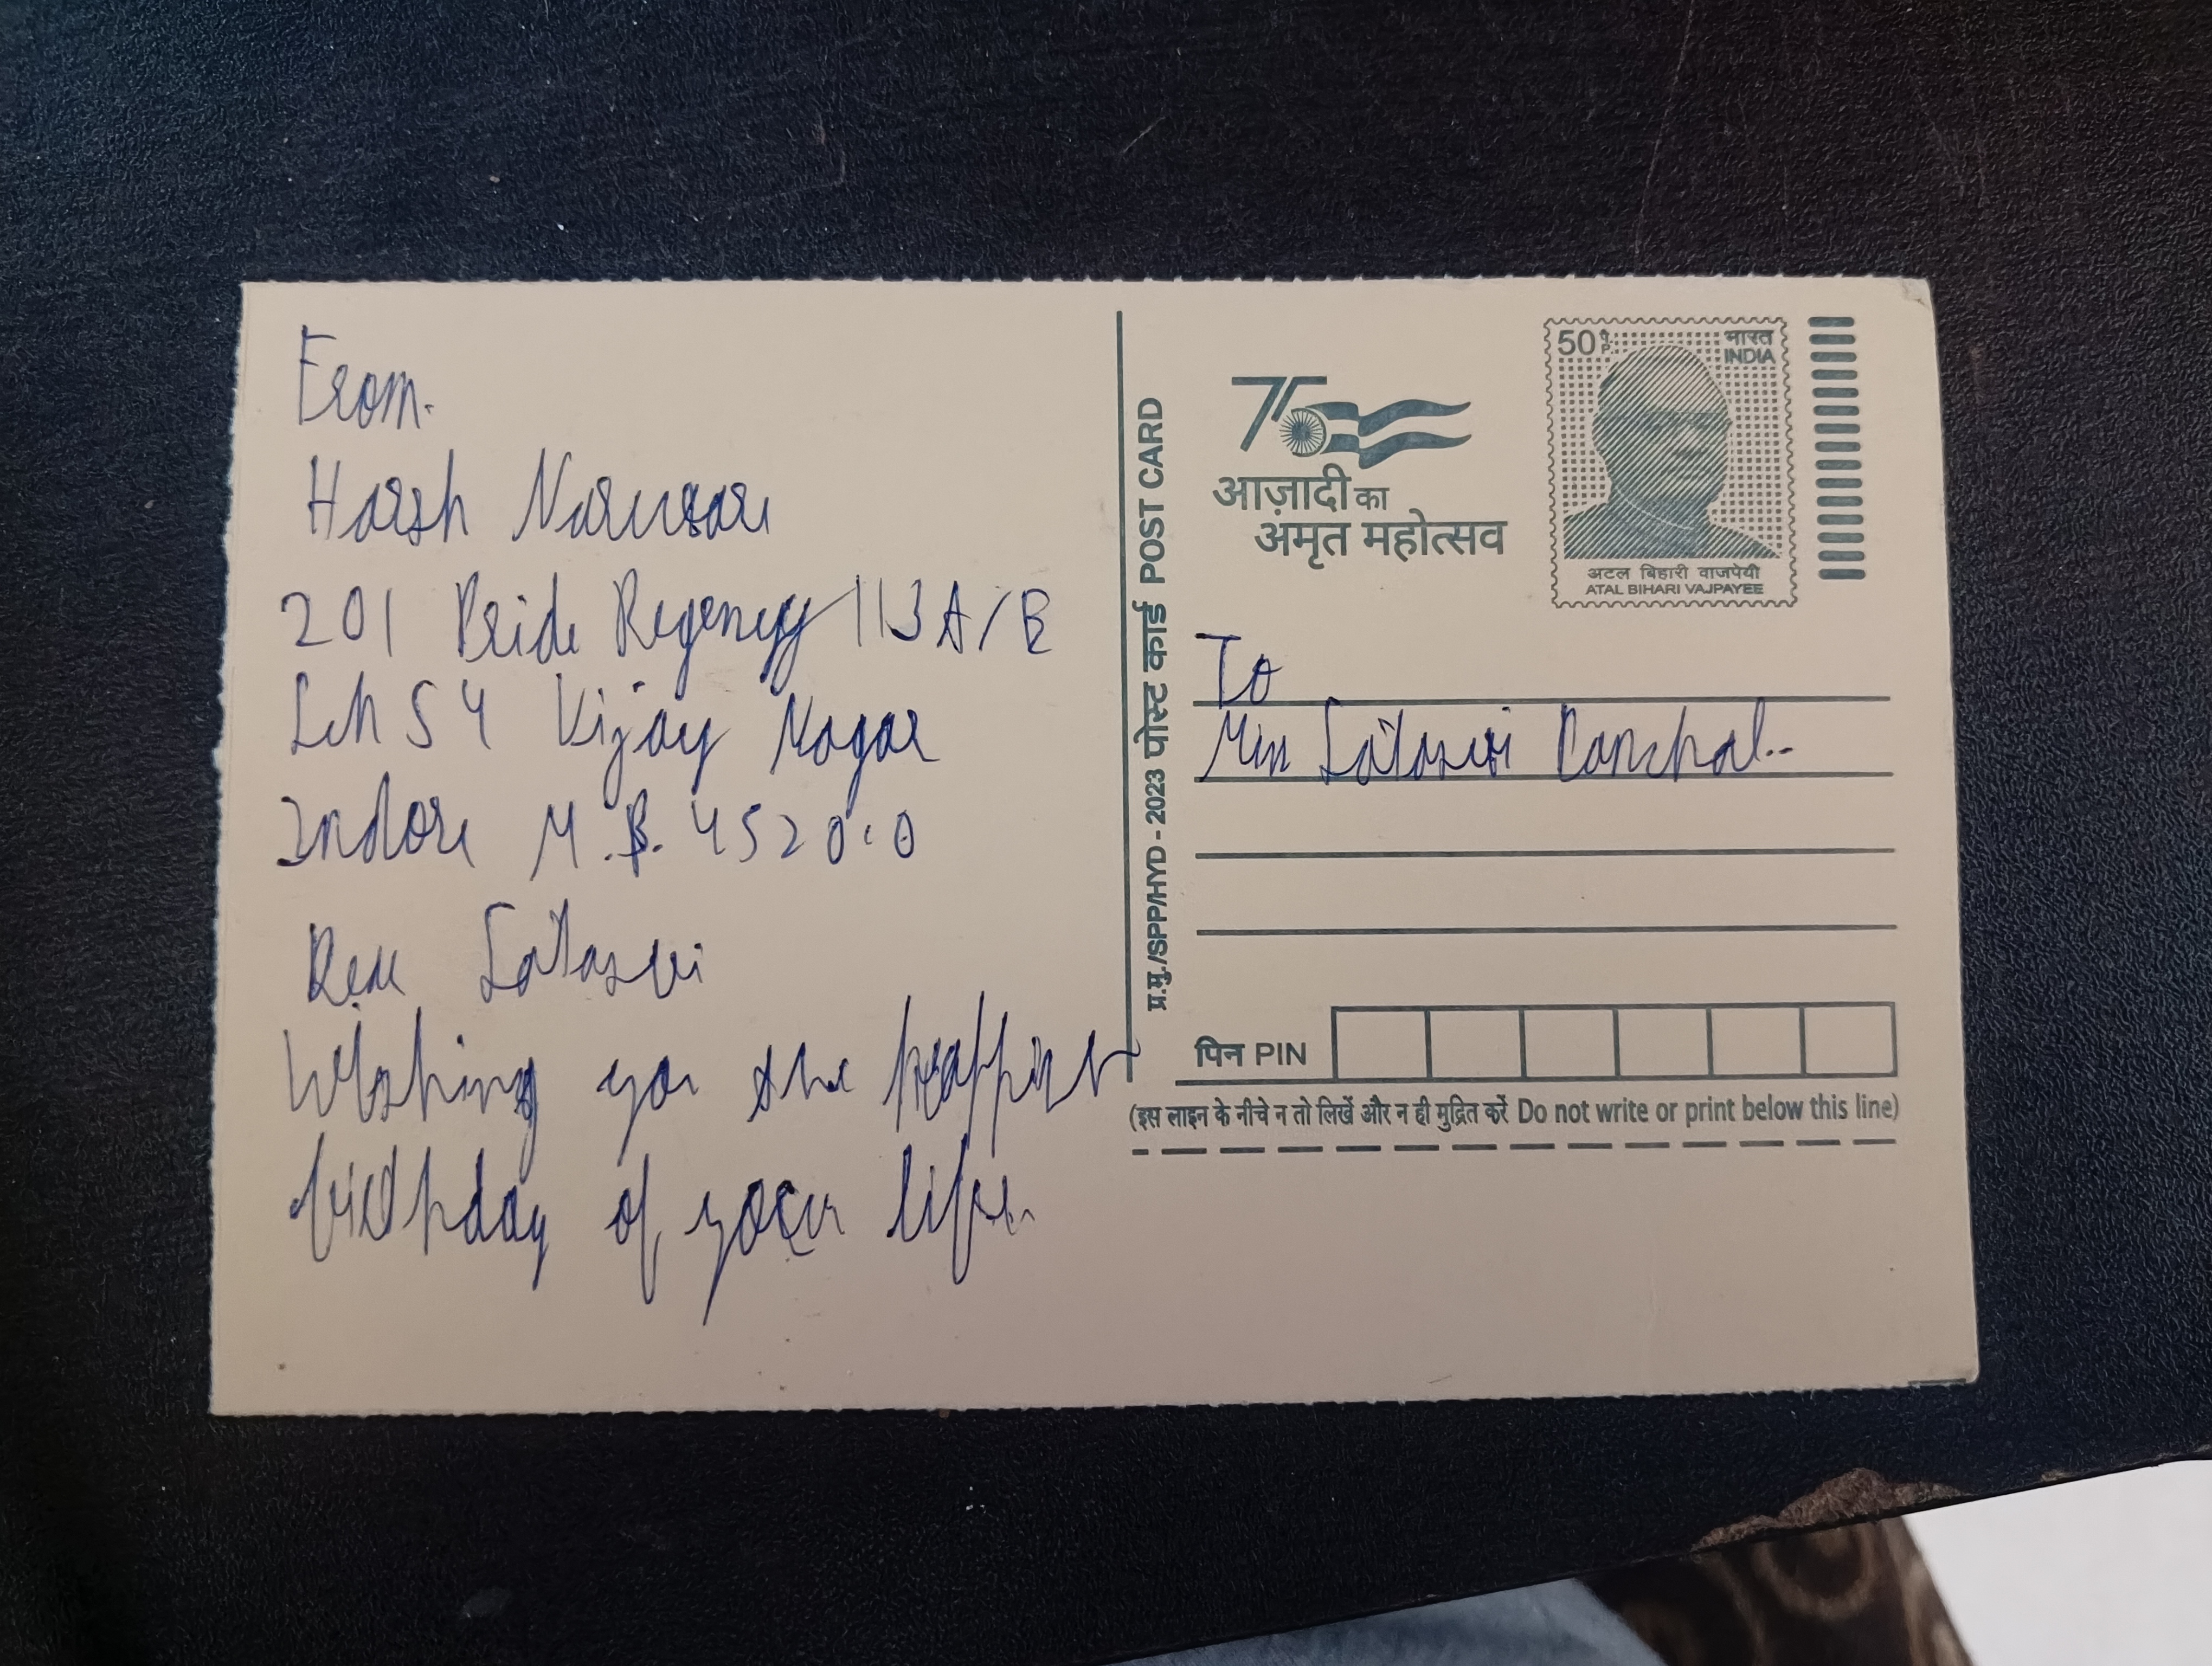 From.
Harsh
201 Pride Regency 113 A/B
Sch 54 Vijay Nagar
Indore M.P. 452010
Sataswi
Wishing you the happiest
birthday of your life.
प्र.मु./SPP/HYD - 2023 पोस्ट कार्ड POST CARD
75
आज़ादी का
अमृत महोत्सव
50 प P
भारत
INDIA
अटल बिहारी वाजपेयी
ATAL BIHARI VAJPAYEE
To
Miss Sataswi Panchal..
पिन PIN
(इस लाइन के नीचे न तो लिखें और न ही मुद्रित करें Do not write or print below this line)